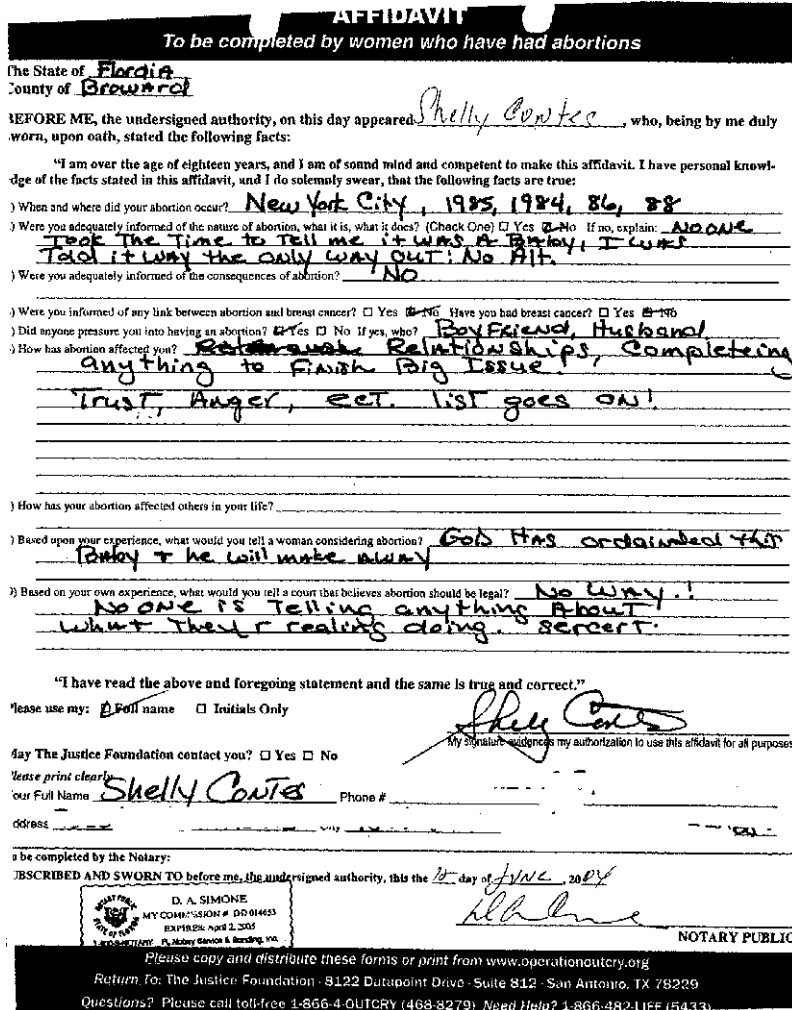 AFFIDAVIT
To be completed by women who have had abortions
The State of Flordia
County of Broward
BEFORE ME, the undersigned authority, on this day appeared Shelly Contes, who, being by me duly
sworn, upon oath, stated the following facts:
"I am over the age of eighteen years, and I am of sound mind and competent to make this affidavit. I have personal knowl-
edge of the facts stated in this affidavit, and I do solemnly swear, that the following facts are true:
) When and where did your abortion occur? New York City, 1985, 1984, 86, 88
) Were you adequately informed of the nature of abortion, what it is, what it does? (Check One) ☐ Yes ☑ No If no, explain: No one
Took The Time to Tell me it was A Baby, I was
Told it way the only way out! No Alt.
) Were you adequately informed of the consequences of abortion? No
.) Were you informed of any link between abortion and breast cancer? ☐ Yes ☑ No Have you had breast cancer? ☐ Yes ☑ No
) Did anyone pressure you into having an abortion? ☑ Yes ☐ No If yes, who? Boyfriend, Husband
.) How has abortion affected you? Relationships, Completeing
anything to Finish Big Issue.
Trust, Anger, ect. list goes on!
) How has your abortion affected others in your life?
) Based upon your experience, what would you tell a woman considering abortion? God Has ordainded this
Baby + he will make away
0) Based on your own experience, what would you tell a court that believes abortion should be legal? No Way!
No one is Telling anything About
what They r realing doing. sercert.
"I have read the above and foregoing statement and the same is true and correct."
Please use my: ☑ Full name ☐ Initials Only
Shelly Contes
My signature evidences my authorization to use this affidavit for all purposes
May The Justice Foundation contact you? ☐ Yes ☐ No
Please print clearly
Your Full Name Shelly Contes Phone #
Address
To be completed by the Notary:
SUBSCRIBED AND SWORN TO before me, the undersigned authority, this the day of June, 2004
D. A. SIMONE
MY COMMISSION # DD 014653
EXPIRES: April 2, 2005
1-800-3-NOTARY FL Notary Service & Bonding, Inc.
NOTARY PUBLIC
STATE OF FLORIDA
NOTARY PUBLIC
Please copy and distribute these forms or print from www.operationoutcry.org
Return To: The Justice Foundation - 8122 Datapoint Drive - Suite 812 - San Antonio, TX 78229
Questions? Please call toll-free 1-866-4-OUTCRY (468-8279) Need Help? 1-866-482-LIFE (5433)